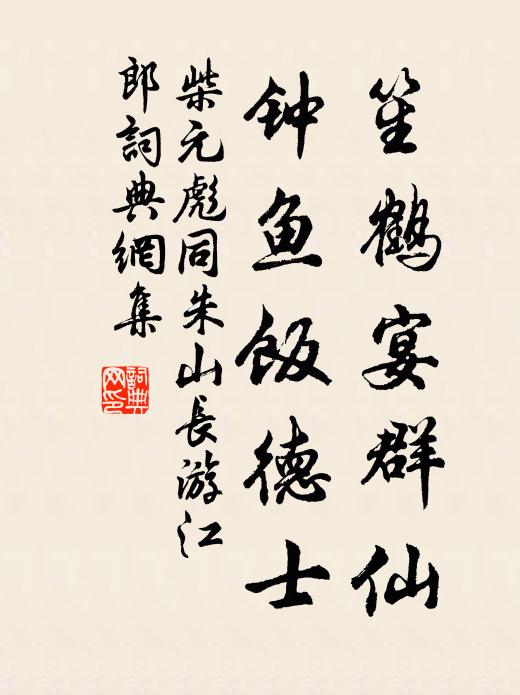 笙鹤宴群仙
钟鱼饭德士
柴元彪同朱山長游江
郎詞典網集
詞典
网印